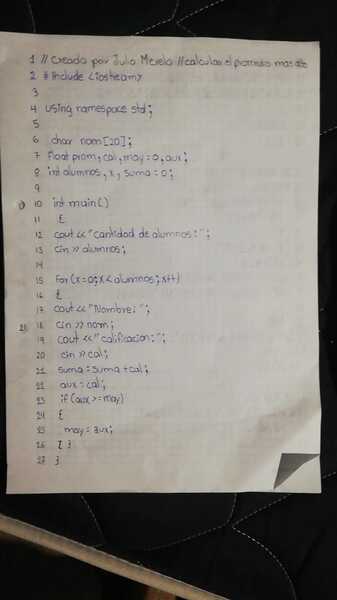 1 // Creado por Julio Merelo // calcular el promedio mas alto
2 # Include <iostream>
3
4 using namespace std;
5
6 char nom[20];
7 float prom, cal, may=0, aux;
8 int alumnos, x, suma=0;
9
10 int main()
11 {
12 cout << "Cantidad de alumnos:";
13 cin >> alumnos;
14
15 for(x=0; x<alumnos; x++)
16 {
17 cout << "Nombre: ";
18 cin >> nom;
19 cout << "calificacion:";
20 cin >> cal;
21 suma = suma + cal;
22 aux = cal;
23 if (aux >= may)
24 {
25 may = aux;
26 } }
27 }